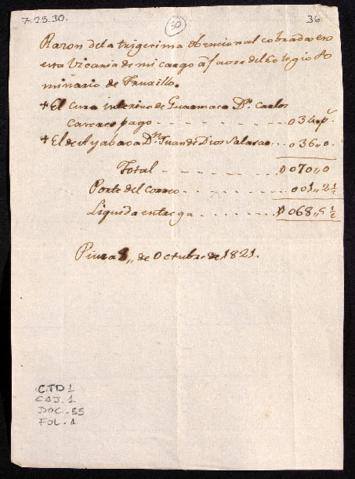 7.25.30.
30
36
Razon de la trigesima Conciliar cobrada en
esta Vicaria de mi cargo á favor del Colegio Se
minario de Truxillo.
+ El Cura interino de Guarmaca Dn. Carlos
Carrasco pago - - - - - - 034 ps.
+ El de Ayabaca Dn. Juan de Dios Salazar - - 036,,0.
Total - - - - - - - p 070,,0
Porte del Correo - - - - - - 001,,2 ½
Liquida entrega - - - - p 068,,5 ½
Piura 8,, de Octubre de 1821.
CTD 1
CAJ. 1
DOC. 55
FOL. 1